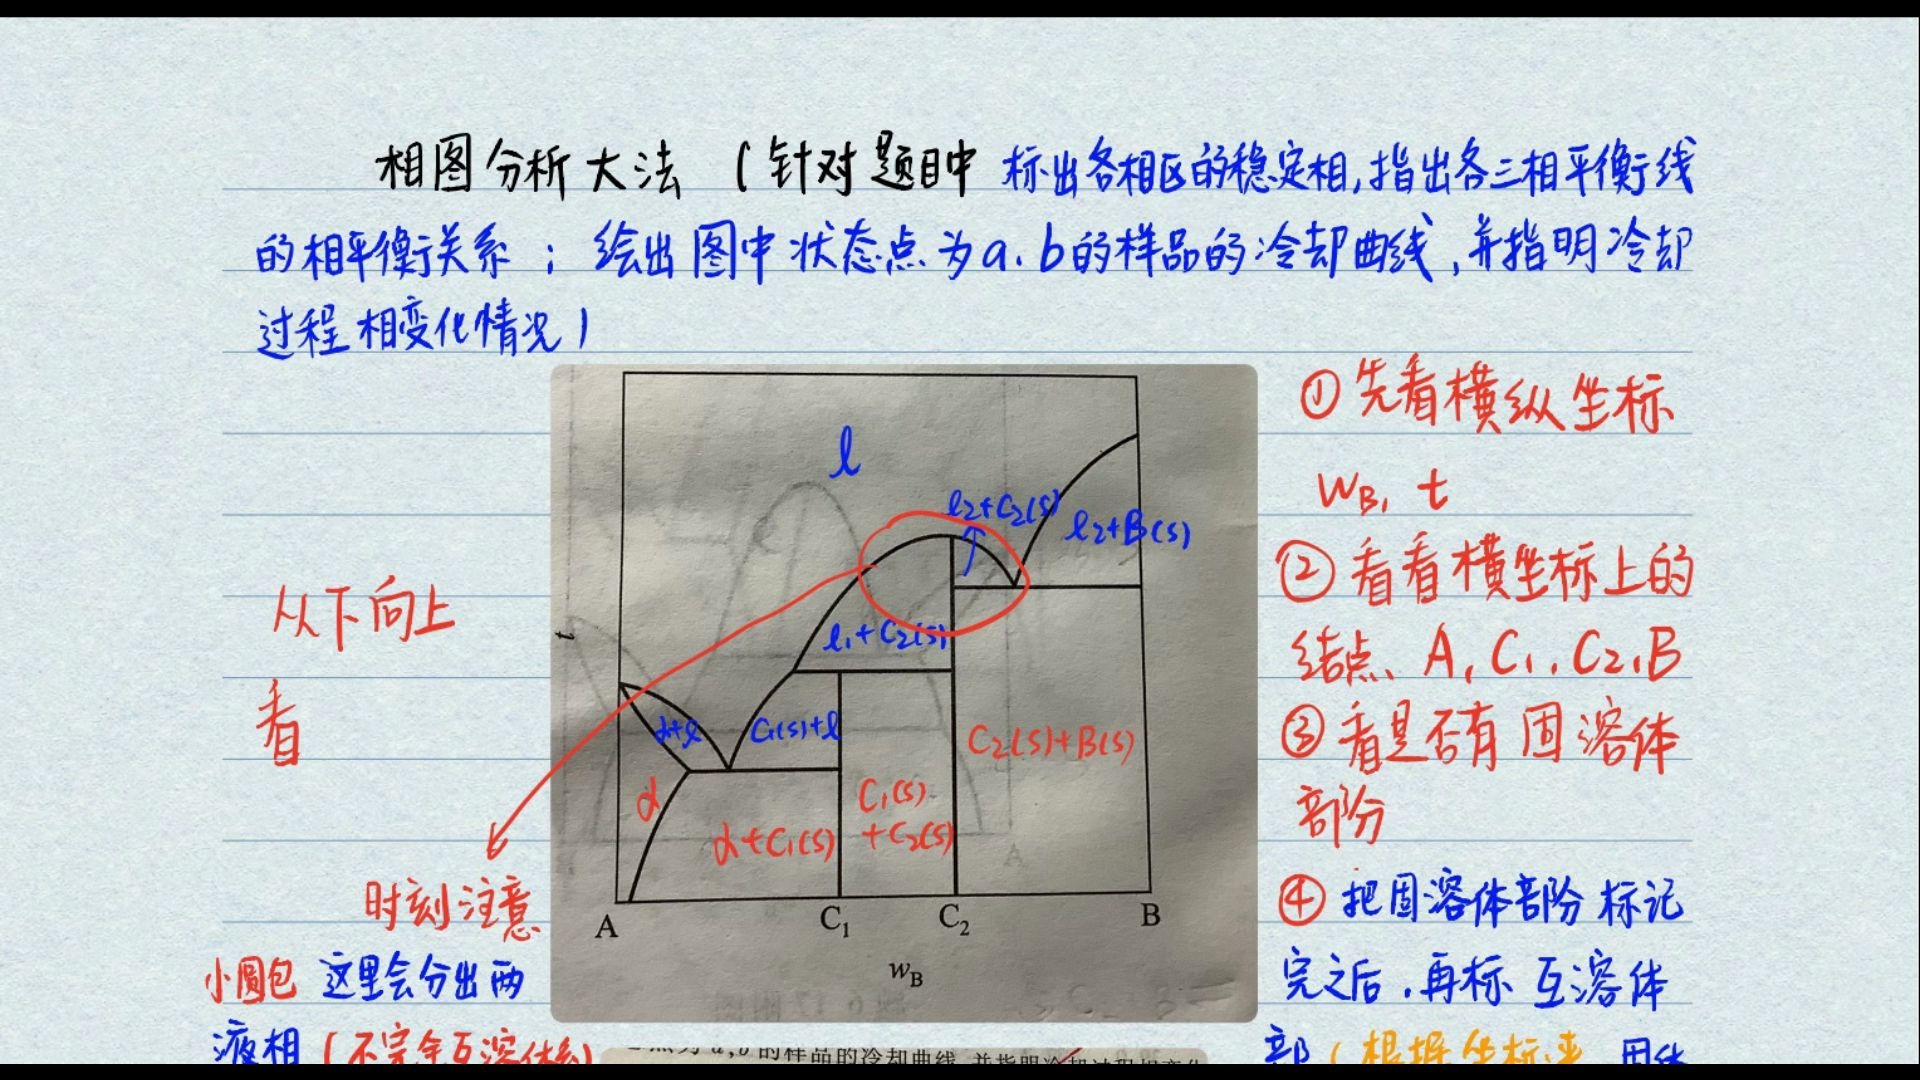 相图分析大法 (针对题目中 标出各相区的稳定相,指出各三相平衡线
的相平衡关系;绘出图中状态点为a.b的样品的冷却曲线,并指明冷却
过程相变化情况)
①先看横纵坐标
wB, t
②看看横坐标上的
结点、A,C1,C2,B
③看是否有固溶体
部分
④把固溶体部分标记
完之后,再标互溶体
部(根据坐标来
从下向上
看
时刻注意
小圆包 这里会分出两
液相(不完全互溶体系)
l
l2+C2(s)
l2+B(s)
l1+C2(s)
t
α+l
C1(s)+l
C2(s)+B(s)
α
C1(s)
+C2(s)
α+C1(s)
A
A
C1
C2
B
wB
a,b的样品的冷却曲线,并指明冷却过程相变化